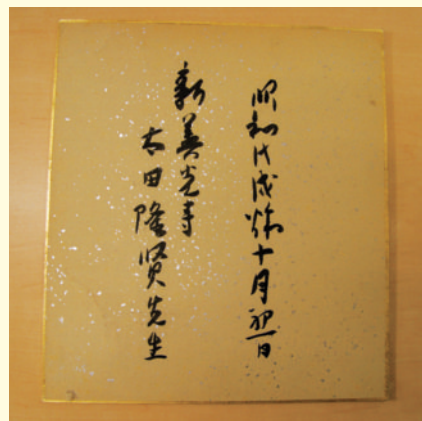 昭和戊戌秋十月初一日
新善光寺
太田隆賢先生